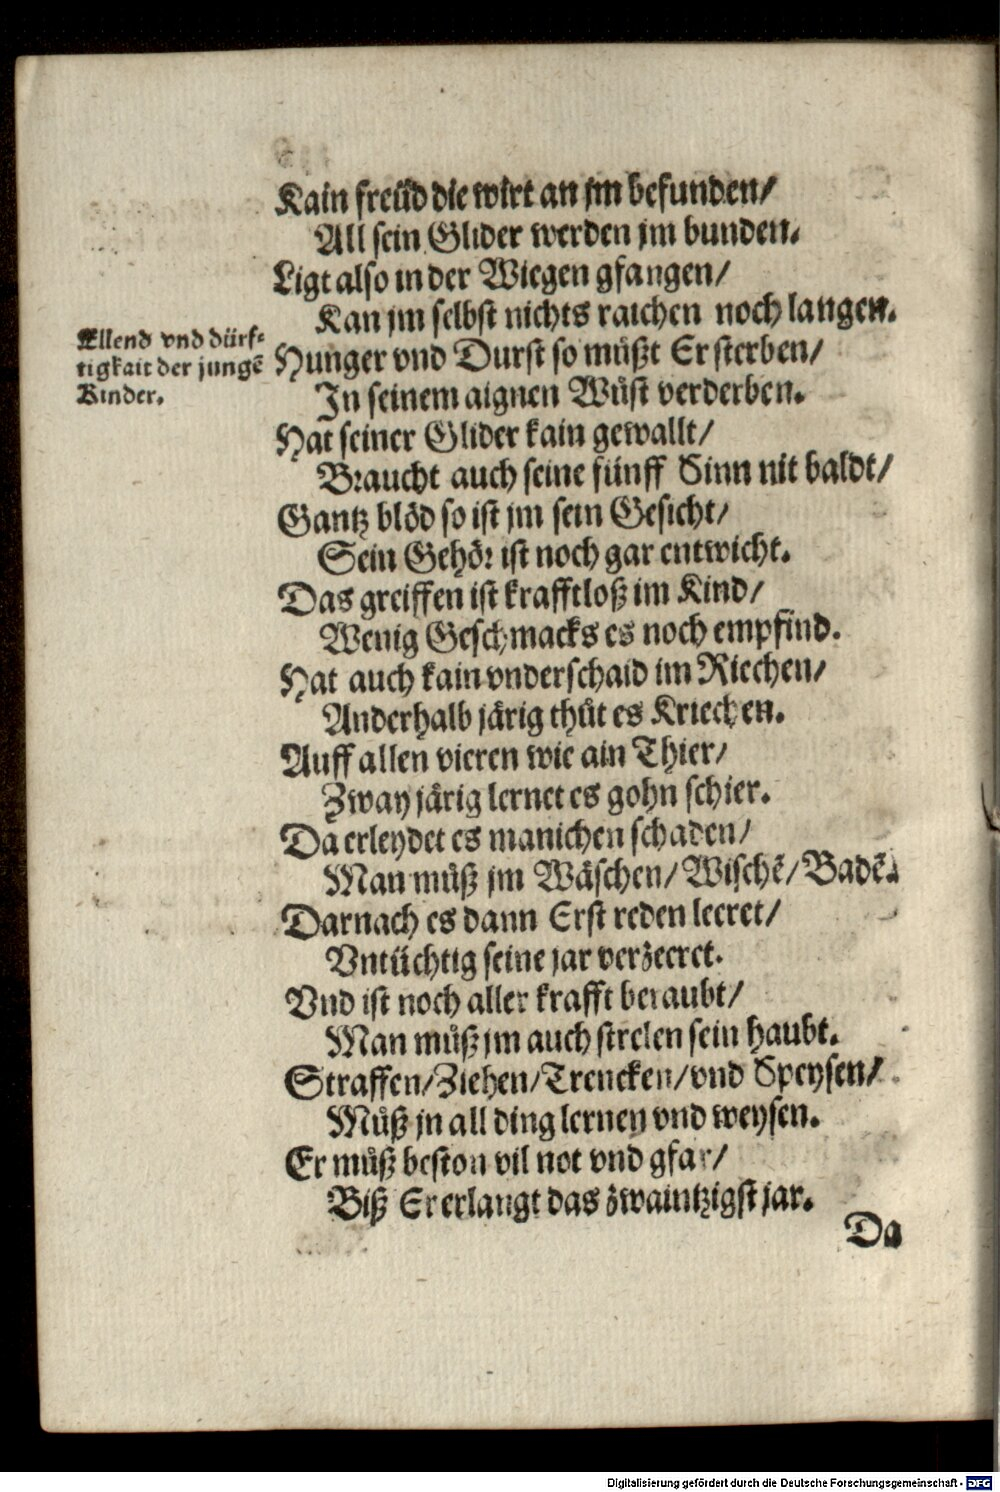 Kain freüd die wirt an jm befunden/
All sein Glider werden jm bunden.
Ligt also in der Wiegen gfangen/
Kan jm selbst nichts raichen noch langen.
Ellend vnd dürf-
tigkait der jungẽ
Kinder.
Hunger vnd Durst so můßt Er sterben/
In seinem aignen Wůst verderben.
Hat seiner Glider kain gewallt/
Braucht auch seine fünff Sinn nit baldt/
Gantz blöd so ist jm sein Gesicht/
Sein Gehör ist noch gar entwicht.
Das greiffen ist krafftloß im Kind/
Wenig Geschmacks es noch empfind.
Hat auch kain vnderschaid im Riechen/
Anderhalb järig thůt es Kriechen.
Auff allen vieren wie ain Thier/
Zway järig lernet es gohn schier.
Da erleydet es manichen schaden/
Man můß jm Wäschen/Wischẽ/Badẽ.
Darnach es dann Erst reden leeret/
Vntüchtig seine jar verzeeret.
Vnd ist noch aller krafft beraubt/
Man můß jm auch strelen sein haubt.
Straffen/Ziehen/Trencken/vnd Speysen/
Můß jn all ding lernen vnd weysen.
Er můß beston vil not vnd gfar/
Biß Er erlangt das zwaintzigst jar.
Da
Digitalisierung gefördert durch die Deutsche Forschungsgemeinschaft - DFG